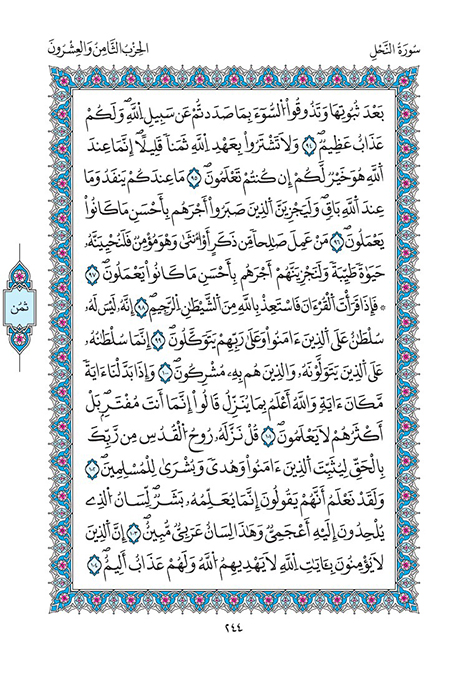 سُورَةُ النَّحْلِ
الحِزْبُ الثَّامِنُ وَالْعِشْرُونَ
بَعْدَ ثُبُوتِهَا وَتَذُوقُواْ السُّوٓءَ بِمَا صَدَدتُّمْ عَن سَبِيلِ اِللَّهِ وَلَكُمْ
عَذَابٌ عَظِيمٌ ٩٤ وَلَا تَشْتَرُواْ بِعَهْدِ اِللَّهِ ثَمَناً قَلِيلًا اِنَّمَا عِندَ
اَللَّهِ هُوَ خَيْرٌ لَّكُمْ إِن كُنتُمْ تَعْلَمُونَ ٩٥ مَا عِندَكُمْ يَنفَدُ وَمَا
عِندَ اَللَّهِ بَاقٍ وَلَيَجْزِيَنَّ اَلذِينَ صَبَرُوٓاْ أَجْرَهُم بِأَحْسَنِ مَا كَانُواْ
يَعْمَلُونَ ٩٦ مَنْ عَمِلَ صَٰلِحاً مِّن ذَكَرٍ اَوُ ا۟نثَىٰ وَهُوَ مُؤْمِنٌ فَلَنُحْيِيَنَّهُۥ
حَيَوٰةً طَيِّبَةً وَلَنَجْزِيَنَّهُمُۥٓ أَجْرَهُم بِأَحْسَنِ مَا كَانُواْ يَعْمَلُونَ ٩٧
* فَإِذَا قَرَأْتَ اَلْقُرْءَانَ فَاسْتَعِذْ بِاللَّهِ مِنَ اَلشَّيْطَٰنِ اِلرَّجِيمِ ٩٨ إِنَّهُۥ لَيْسَ لَهُۥ
سُلْطَٰنٌ عَلَى اَلذِينَ ءَامَنُواْ وَعَلَىٰ رَبِّهِمْ يَتَوَكَّلُونَ ٩٩ إِنَّمَا سُلْطَٰنُهُۥ
عَلَى اَلذِينَ يَتَوَلَّوْنَهُۥ وَالذِينَ هُم بِهِۦ مُشْرِكُونَ ١٠٠ وَإِذَا بَدَّلْنَآ ءَايَةً
مَّكَانَ ءَايَةٍ وَاللَّهُ أَعْلَمُ بِمَا يُنَزِّلُ قَالُوٓاْ إِنَّمَآ أَنتَ مُفْتَرٍ بَلَ
اَكْثَرُهُمْ لَا يَعْلَمُونَ ١٠١ قُلْ نَزَّلَهُۥ رُوحُ اُلْقُدُسِ مِن رَّبِّكَ
بِالْحَقِّ لِيُثَبِّتَ اَلذِينَ ءَامَنُواْ وَهُدىً وَبُشْرَىٰ لِلْمُسْلِمِينَ ١٠٢
وَلَقَدْ نَعْلَمُ أَنَّهُمْ يَقُولُونَ إِنَّمَا يُعَلِّمُهُۥ بَشَرٌ لِّسَانُ اُلذِے
يُلْحِدُونَ إِلَيْهِ أَعْجَمِيٌّ وَهَٰذَا لِسَانٌ عَرَبِيٌّ مُّبِينٌ ١٠٣ اِنَّ اَلذِينَ
لَا يُؤْمِنُونَ بِـَٔايَٰتِ اِللَّهِ لَا يَهْدِيهِمُ اُللَّهُ وَلَهُمْ عَذَابٌ اَلِيمٌ ١٠٤
ثُمُن
٢٤٤